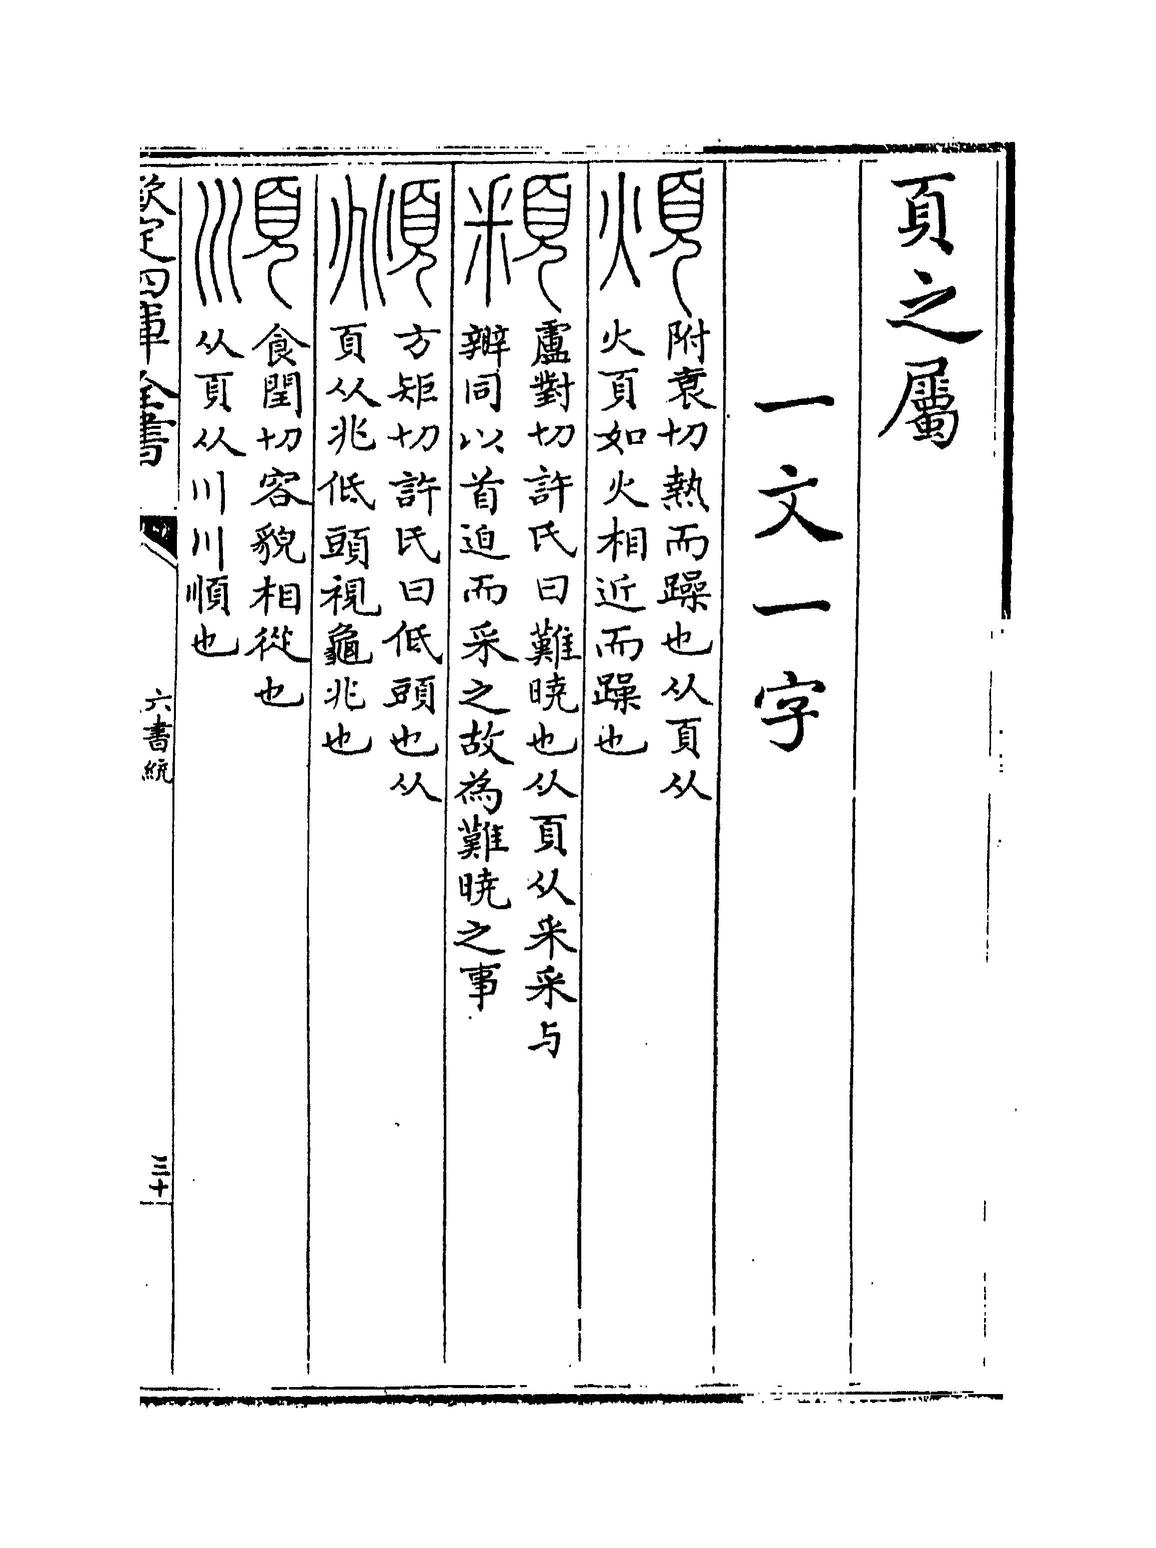 頁之屬
一文一字
煩
附袁切熱而躁也从頁从
火頁如火相近而躁也
䫅
盧對切許氏曰難曉也从頁从釆釆与
辧同以首迫而釆之故為難曉之事
頫
方矩切許氏曰低頭也从
頁从兆低頭視龜兆也
順
食閏切容貌相從也
从頁从川川順也
欽定四庫全書
六書統
三十